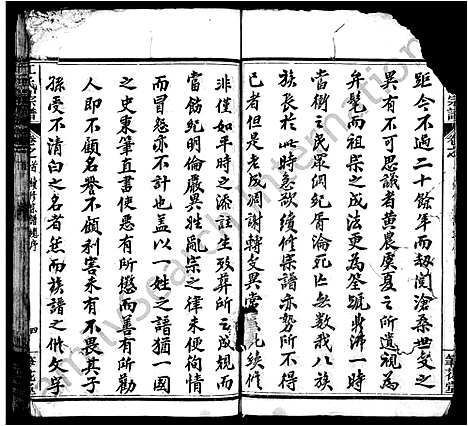 距今不過二十餘年而刼閱滄桑世變之
異有不可思議者黄農虞夏之所遺視為
弁髦而祖宗之成法更為筌蹄鼎沸一時
當街之民眾綱紀胥淪死亡無數我八族
族長於此時急欲續修宗譜亦勢所不得
已者但是老成凋謝轉變異常 此後修
非僅如平時之添註生歿葬所已成規而
當飭紀明倫嚴異姓亂宗之律未便徇情
而冒怨亦不計也蓋以一姓之譜猶一國
之史東筆直書使惡有所懲而善有所勸
人即不顧名譽不顧利害未有不畏其子
孫受不清白之名者然而族譜之修久乎
氏宗譜
卷之首 續修宗譜總序
四
宗譜